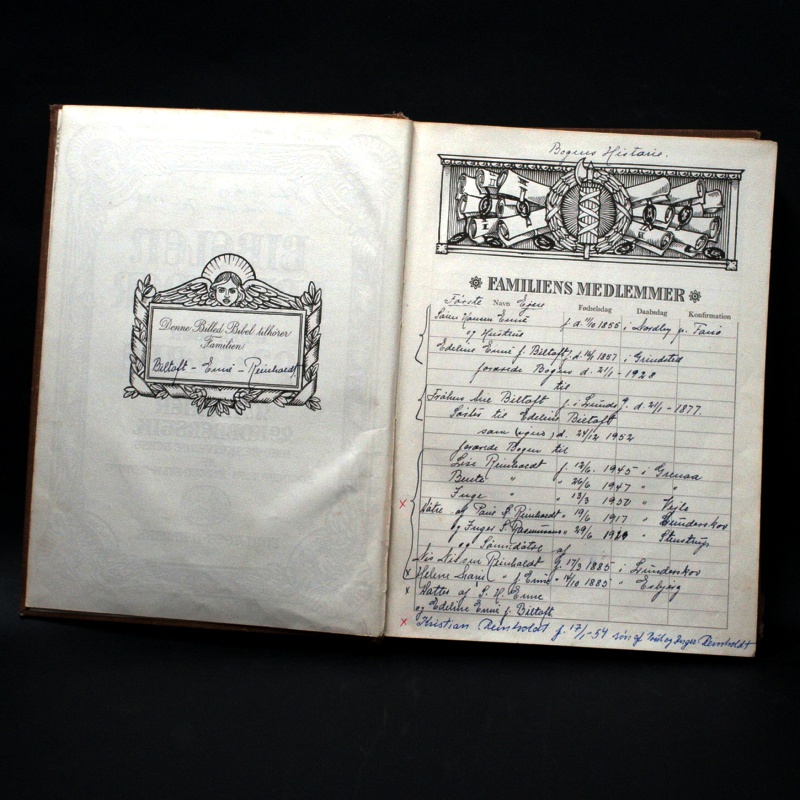 Denne Billed-Bibel tilhører
Familien
Biltoft - Enné - Reinhardt
Bogens Historie.
FAMILIENS MEDLEMMER
Første Navn Ejere Fødselsdag Daabsdag Konfirmation
Søren Hansen Enné f. d. 1855 i Nordby p. Fanø
og Hustru
Edeline Enné f. Biltoft f. d. 1857 i Grindsted
forærede Bogen d. 2/1 - 1928
til
Frøken Mie Biltoft f. i d. 2/1 - 1877.
Søster til Edeline Biltoft
som d. 24/12 1952
forærede Bogen til
Lise Reinhardt f. 12/6. 1945 i Grenaa
Bente " " 26/6 1947 " "
Inge " " 13/3 1950 " Vejle
Døtre af Poul S. Reinhardt " 19/6 1917 " Lunderskov
og Inger S. Rasmussen " 29/6 " Stenstrup
og Sønnedøtre af
Nis Nissen Reinhardt f. 17/3 1885 i Lunderskov
Helene " f. Enné " 14/10 1885 " Esbjerg
Datter af S. H. Enné
og Edeline Enné f. Biltoft
Kristian Reinholdt f. 17/1-54 søn af Poul og Inger Reinholdt